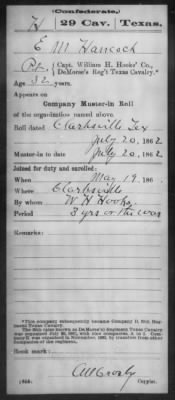 (Confederate.)
H 29 Cav. Texas.
E M Hancock
Pvt, Capt. William H. Hooks' Co., DeMorse's Reg't Texas Cavalry.*
Age 32 years.
Appears on
Company Muster-in Roll
of the organization named above.
Roll dated Clarksville Tex
July 20, 1862
Muster-in to date July 20, 1862
Joined for duty and enrolled:
When May 19, 186
Where Clarksville
By whom W H Hooks
Period 3 yrs or the war
Remarks:
*This company subsequently became Company H, 29th Regiment Texas Cavalry.
Book mark:
A M Crosby
Copyist.